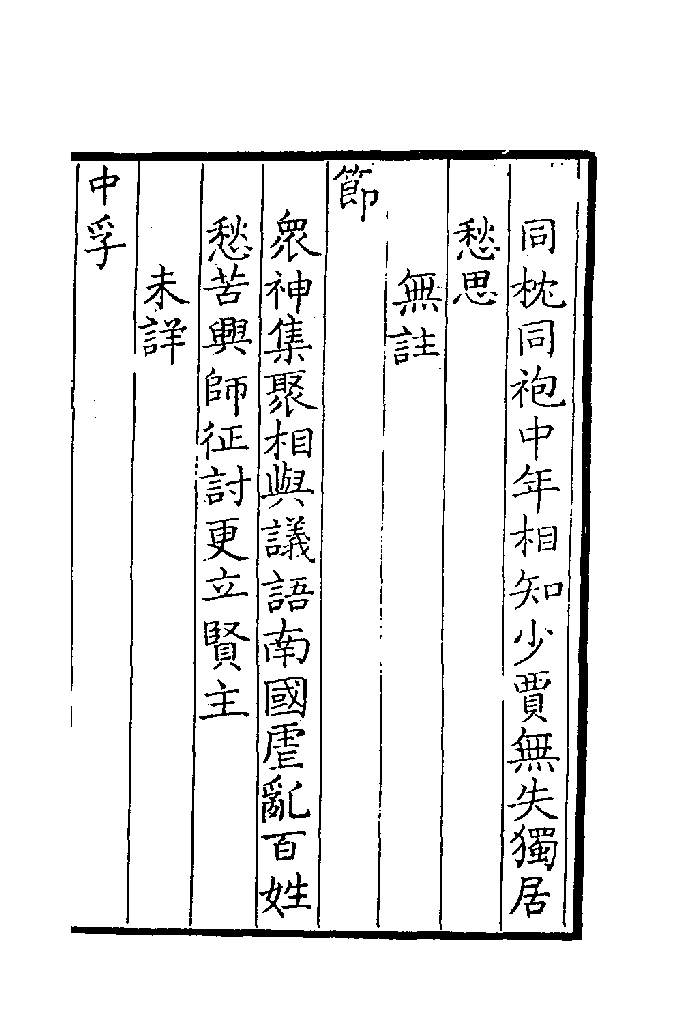 同枕同袍中年相知少賈無失獨居
愁思
無註
節
衆神集聚相與議語南國虐亂百姓
愁苦興師征討更立賢主
未詳
中孚